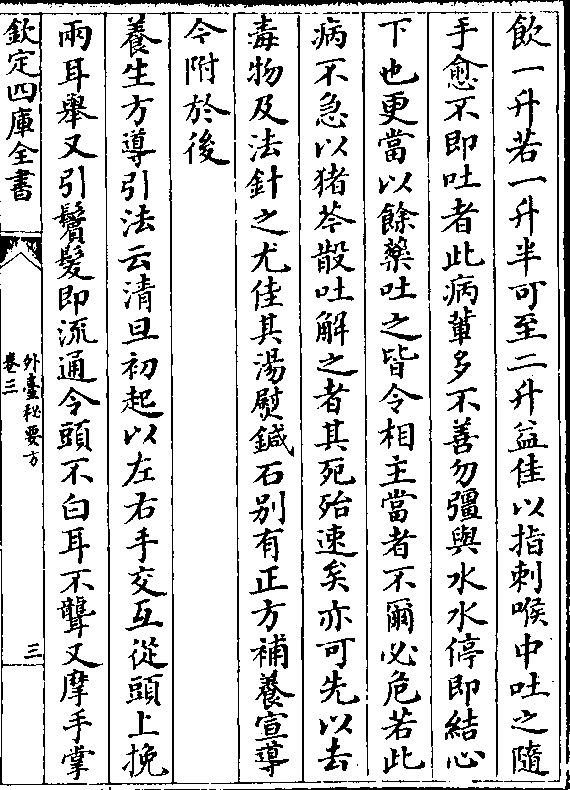 飲一升若一升半可至二升益佳以指刺喉中吐之隨
手愈不即吐者此病軰多不善勿彊與水水停即結心
下也更當以餘藥吐之皆令相主當者不爾必危若此
病不急以猪苓散吐解之者其死殆速矣亦可先以去
毒物及法針之尤佳其湯熨鍼石别有正方補養宣導
今附於後
養生方導引法云清旦初起以左右手交互從頭上挽
兩耳舉又引鬢髮即流通令頭不白耳不聾又摩手掌
欽定四庫全書
外臺秘要方
卷三
三